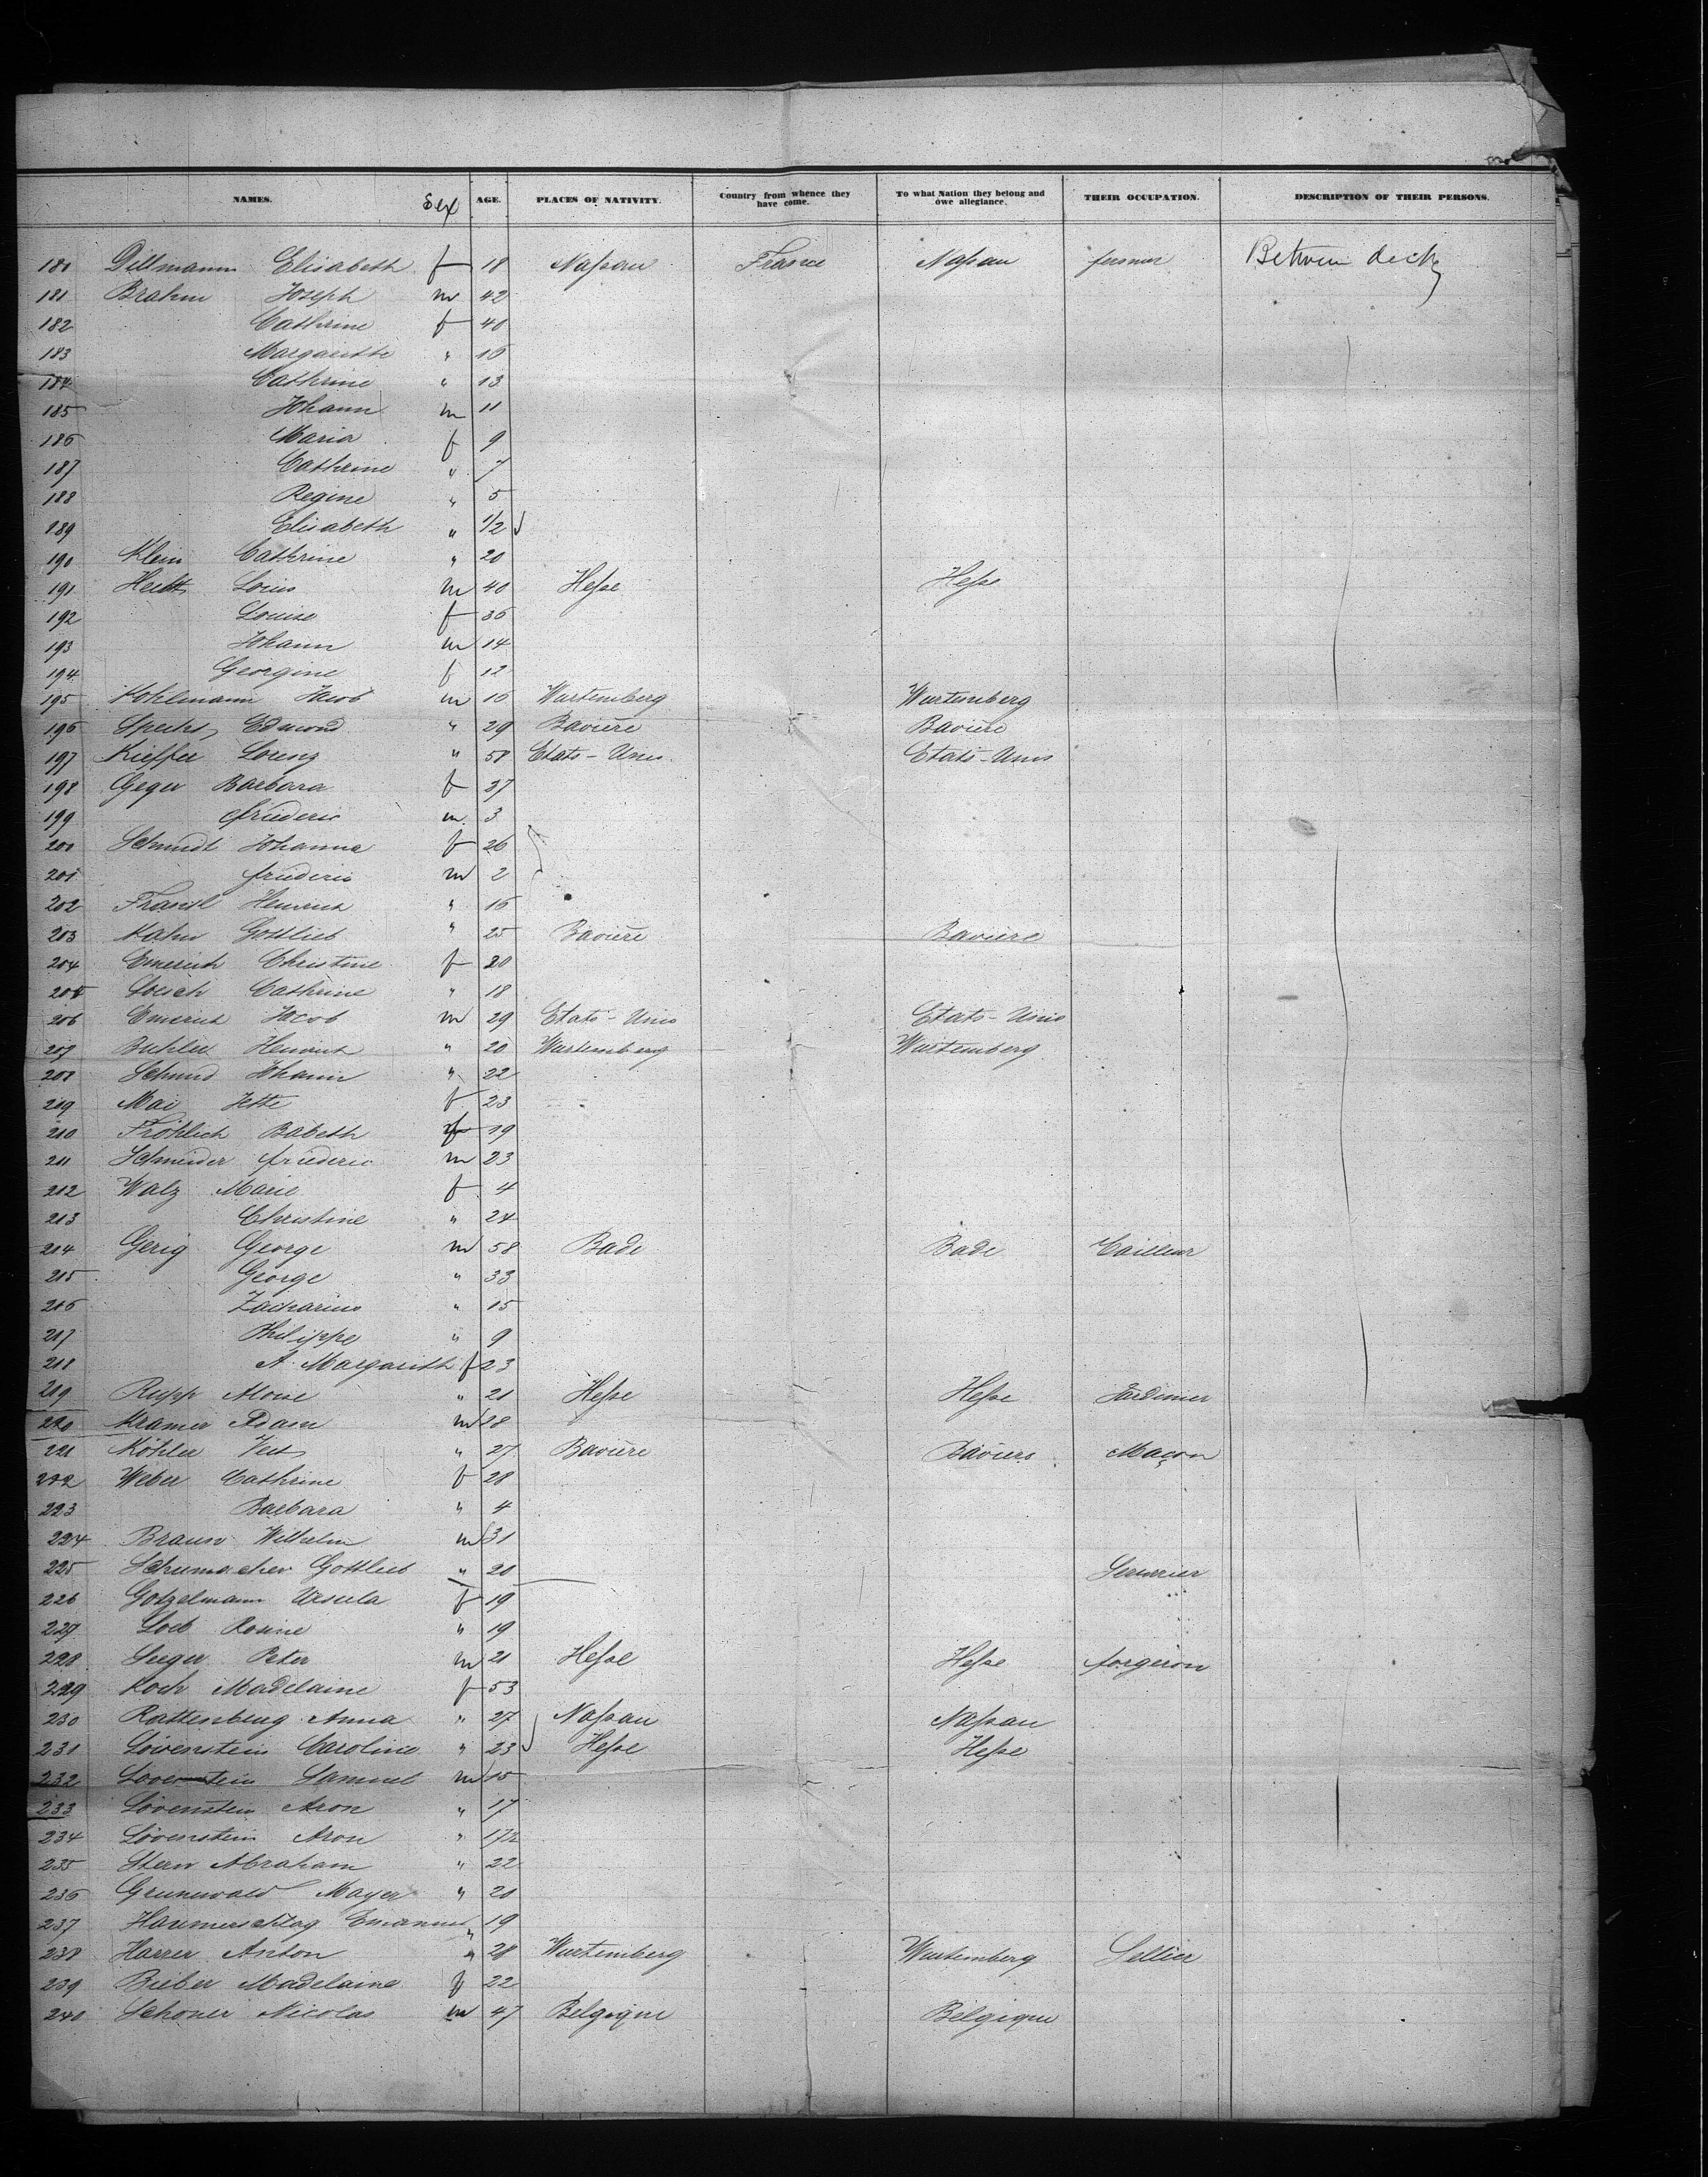 NAMES. Sex AGE. PLACES OF NATIVITY. Country from whence they have come. To what Nation they belong and owe allegiance. THEIR OCCUPATION. DESCRIPTION OF THEIR PERSONS.
180 Dillmann Elisabeth f 18 Nassau France Nassau fermier Between decks
181 Brahm Joseph m 42
182 Cathrine f 40
183 Margarithe " 16
184 Cathrine " 13
185 Johann m 11
186 Maria f 9
187 Cathrine " 7
188 Regine " 5
189 Elisabeth " 1/2
190 Klein Cathrine " 20
191 Louis m 40 Hesse Hesse
192 Louise f 36
193 Johann m 14
194 Georgine f 12
195 Kohlmann Jacob m 16 Wurtemberg Wurtemberg
196 Specht Edmond " 29 Bavière Bavière
197 Kieffer Lorenz " 58 Etats-Unis Etats-Unis
198 Geger Barbara f 37
199 friederic m 3
200 Schmidt Johanna f 26
201 friederic m 2
202 Heinrich " 16
203 Kahn Gottlieb " 25 Bavière Bavière
204 Emerich Christine f 20
205 Loesch Cathrine " 18
206 Emerich Jacob m 29 Etats-Unis Etats-Unis
207 Buhler Heinrich " 20 Wurtemberg Wurtemberg
208 Schmid Johann " 22
209 Mai Jette f 23
210 Fröhlich Babeth f 19
211 Schneider friederic m 23
212 Walz Marie f 4
213 Christine " 24
214 Gerig George m 58 Bade Bade Tailleur
215 George " 33
216 Zacharias " 15
217 Philippe " 9
218 A. Margarith f 23
219 Rupp " 21 Hesse Hesse Jardinier
220 Kramer Adam m 18
221 Köhler Veit " 27 Bavière Baviers Maçon
222 Weber Cathrine f 28
223 Barbara " 4
224 Braun Wilhelm m 31
225 Schumacher Gottlieb " 20 Serrurier
226 Gotzelmann Ursula f 19
227 Loeb Rosine " 19
228 Seeger Peter m 21 Hesse Hesse forgeron
229 Koch Madelaine f 53
230 Rattenberg Anna " 27 Nassau Nassau
231 Lövenstein Caroline " 23 Hesse Hesse
232 Lövenstein Samuel m 15
233 Lövenstein Aron " 17
234 Lövenstein Aron " 17½
235 Stern Abraham " 22
236 Grunewald Mayer " 20
237 Hammerschlag Emanuel " 19
238 Harrer Anton " 28 Wurtemberg Wurtemberg Sellier
239 Bieber Madelaine f 22
240 Schoner Nicolas m 47 Belgique Belgique